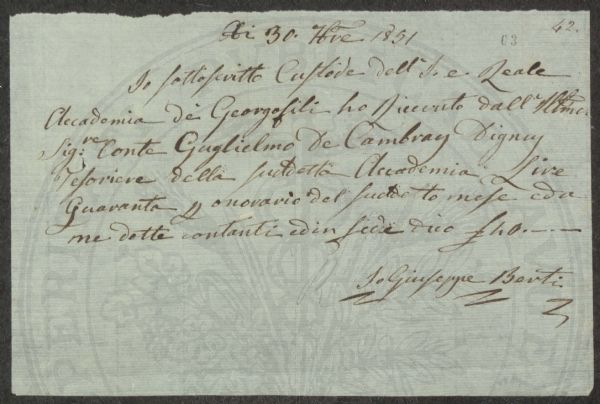 Di 30. 9bre 1851
42.
63
Io sottoscritto Custode dell' I. e. Reale
Accademia de Georgofili ho Ricevuto dall' Illmo.
Sig.re Conte Guglielmo De Cambray Digny
Tesoriere della suddetta Accademia Lire
Quaranta p onorario del suddeto mese ed a
me dette contanti ed in fede dico £ 40.-.-.-
Io Giuseppe Berti